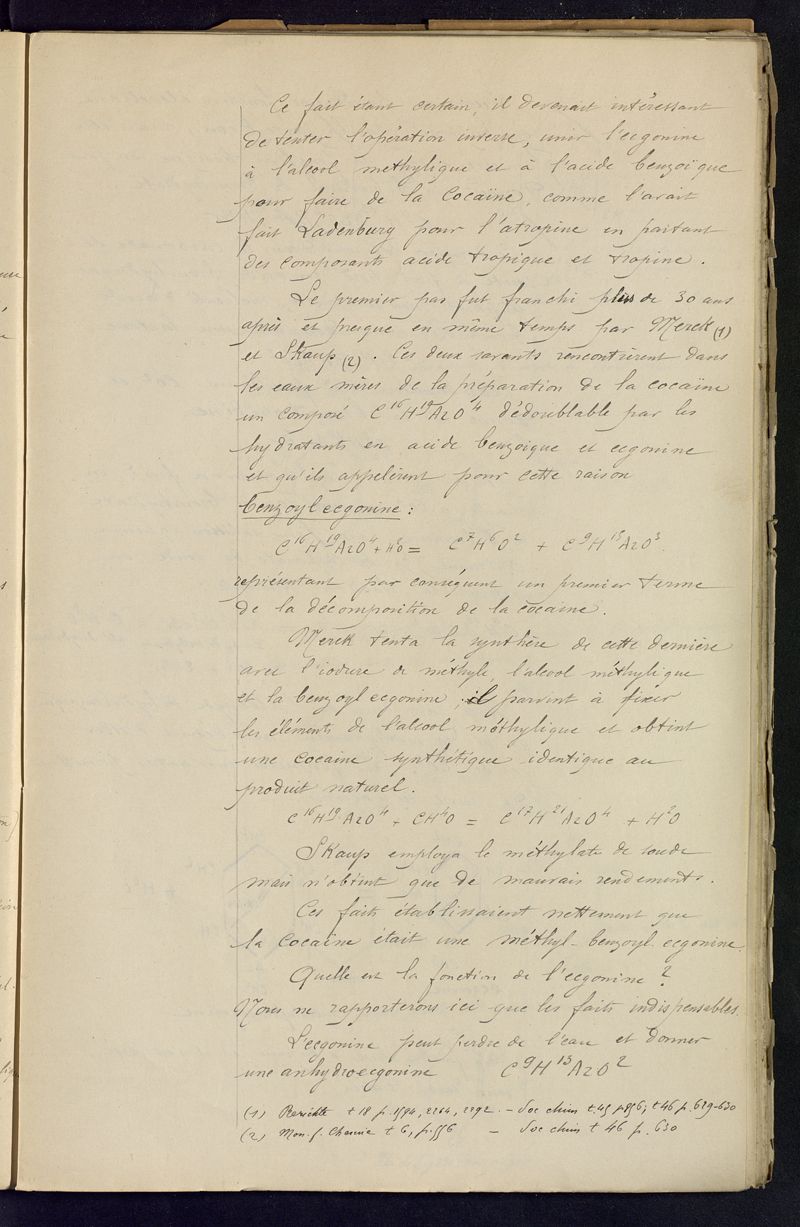 Ce fait étant certain, il devenait intéressant
de tenter l'opération inverse, unir l'ecgonine
à l'alcool méthylique et à l'acide benzoïque
pour faire de la Cocaïne, comme l'avait
fait Ladenburg pour l'atropine en partant
des composants acide tropique et tropine.
Le premier pas fut franchi plus de 30 ans
après et presque en même temps par Merck (1)
et Skaup (2). Ces deux savants rencontrèrent dans
les eaux mères de la préparation de la cocaïne
un composé C¹⁶H¹⁹AzO⁴ dédoublable par les
hydratants en acide benzoique et ecgonine
et qu'ils appelèrent pour cette raison
benzoylecgonine :
C¹⁶H¹⁹AzO⁴ + H²O = C⁷H⁶O² + C⁹H¹⁵AzO³.
représentant par conséquent un premier terme
de la décomposition de la cocaïne.
Merck tenta la synthèse de cette dernière
avec l'iodure de méthyle, l'alcool méthylique
et la benzoylecgonine, il parvint à fixer
les éléments de l'alcool méthylique et obtint
une cocaïne synthétique identique au
produit naturel.
C¹⁶H¹⁹AzO⁴ + CH⁴O = C¹⁷H²¹AzO⁴ + H²O
Skaup employa le méthylate de soude
mais n'obtint que de mauvais rendements.
Ces faits établissaient nettement que
la Cocaïne était une méthyl-benzoyl-ecgonine.
Quelle est la fonction de l'ecgonine ?
Nous ne rapporterons ici que les faits indispensables.
L'ecgonine peut perdre de l'eau et donner
une anhydroecgonine C⁹H¹³AzO²
(1) Berichte t 18 p. 1594, 2264, 2292. – Soc chim t. 45 p 856; t 46 p. 629-630
(2) Mon. f. Chemie t 6, p. 556 – Soc chim t 46 p. 630